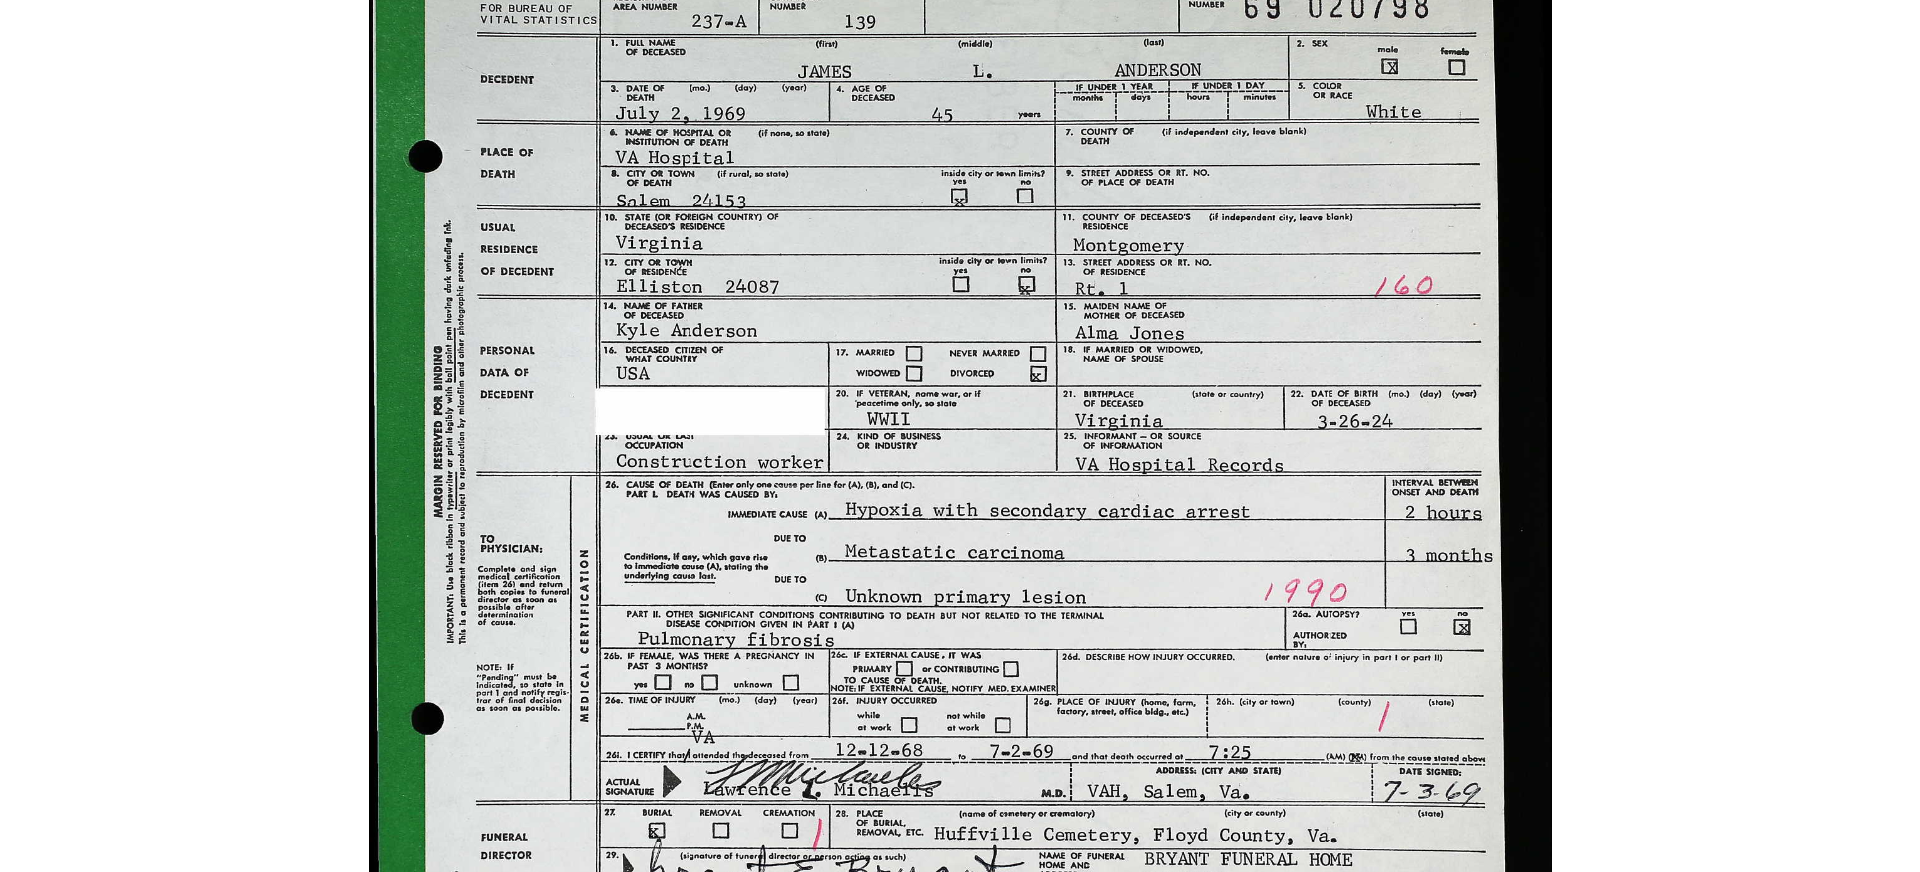 FOR BUREAU OF VITAL STATISTICS
AREA NUMBER 237-A
NUMBER 139
NUMBER 69 020798
DECEDENT
1. FULL NAME OF DECEASED (first) (middle) (last)
JAMES L. ANDERSON
2. SEX male [x] female
3. DATE OF DEATH (mo.) (day) (year)
July 2, 1969
4. AGE OF DECEASED
45 years
IF UNDER 1 YEAR months days
IF UNDER 1 DAY hours minutes
5. COLOR OR RACE
White
PLACE OF DEATH
6. NAME OF HOSPITAL OR INSTITUTION OF DEATH (if none, so state)
VA Hospital
7. COUNTY OF DEATH (if independent city, leave blank)
8. CITY OR TOWN OF DEATH (if rural, so state)
Salem 24153
inside city or town limits? yes [x] no
9. STREET ADDRESS OR RT. NO. OF PLACE OF DEATH
USUAL RESIDENCE OF DECEDENT
10. STATE (OR FOREIGN COUNTRY) OF DECEASED'S RESIDENCE
Virginia
11. COUNTY OF DECEASED'S RESIDENCE (if independent city, leave blank)
Montgomery
12. CITY OR TOWN OF RESIDENCE
Elliston 24087
inside city or town limits? yes no [x]
13. STREET ADDRESS OR RT. NO. OF RESIDENCE
Rt. 1
160
PERSONAL DATA OF DECEDENT
14. NAME OF FATHER OF DECEASED
Kyle Anderson
15. MAIDEN NAME OF MOTHER OF DECEASED
Alma Jones
16. DECEASED CITIZEN OF WHAT COUNTRY
USA
17. MARRIED NEVER MARRIED
WIDOWED DIVORCED [x]
18. IF MARRIED OR WIDOWED, NAME OF SPOUSE
20. IF VETERAN, name war, or if peacetime only, so state
WWII
21. BIRTHPLACE OF DECEASED (state or country)
Virginia
22. DATE OF BIRTH OF DECEASED (mo.) (day) (year)
3-26-24
23. USUAL OR LAST OCCUPATION
Construction worker
24. KIND OF BUSINESS OR INDUSTRY
25. INFORMANT - OR SOURCE OF INFORMATION
VA Hospital Records
MARGIN RESERVED FOR BINDING
IMPORTANT: Use black ribbon in typewriter or print legibly with ball point pen having dark unfading ink.
This is a permanent record and subject to reproduction by microfilm and other photographic process.
TO PHYSICIAN:
Complete and sign medical certification (item 26) and return both copies to funeral director as soon as possible after determination of cause.
NOTE: If "Pending" must be indicated, so state in part 1 and notify registrar of final decision as soon as possible.
MEDICAL CERTIFICATION
26. CAUSE OF DEATH (Enter only one cause per line for (A), (B), and (C).
PART I. DEATH WAS CAUSED BY:
INTERVAL BETWEEN ONSET AND DEATH
IMMEDIATE CAUSE (A) Hypoxia with secondary cardiac arrest
2 hours
DUE TO
Conditions, if any, which gave rise to immediate cause (A), stating the underlying cause last.
(B) Metastatic carcinoma
3 months
DUE TO
(C) Unknown primary lesion
1990
PART II. OTHER SIGNIFICANT CONDITIONS CONTRIBUTING TO DEATH BUT NOT RELATED TO THE TERMINAL DISEASE CONDITION GIVEN IN PART I (A)
Pulmonary fibrosis
26a. AUTOPSY? yes no [x]
AUTHORIZED BY:
26b. IF FEMALE, WAS THERE A PREGNANCY IN PAST 3 MONTHS?
yes no unknown
26c. IF EXTERNAL CAUSE, IT WAS
PRIMARY or CONTRIBUTING
TO CAUSE OF DEATH.
NOTE: IF EXTERNAL CAUSE, NOTIFY MED. EXAMINER
26d. DESCRIBE HOW INJURY OCCURRED. (enter nature of injury in part I or part II)
26e. TIME OF INJURY (mo.) (day) (year)
A.M.
P.M.
26f. INJURY OCCURRED
while at work not while at work
26g. PLACE OF INJURY (home, farm, factory, street, office bldg., etc.)
26h. (city or town) (county) (state)
1
VA
26i. I CERTIFY that/ attended the deceased from 12-12-68 to 7-2-69 and that death occurred at 7:25 (AM) from the cause stated above
ACTUAL SIGNATURE
Lawrence L. Michaelis M.D.
ADDRESS: (CITY AND STATE)
VAH, Salem, Va.
DATE SIGNED:
7-3-69
FUNERAL DIRECTOR
27. BURIAL [x] REMOVAL CREMATION
1
28. PLACE OF BURIAL, REMOVAL, ETC. (name of cemetery or crematory) (city or county) (state)
Huffville Cemetery, Floyd County, Va.
29. (signature of funeral director or person acting as such)
NAME OF FUNERAL HOME AND
BRYANT FUNERAL HOME